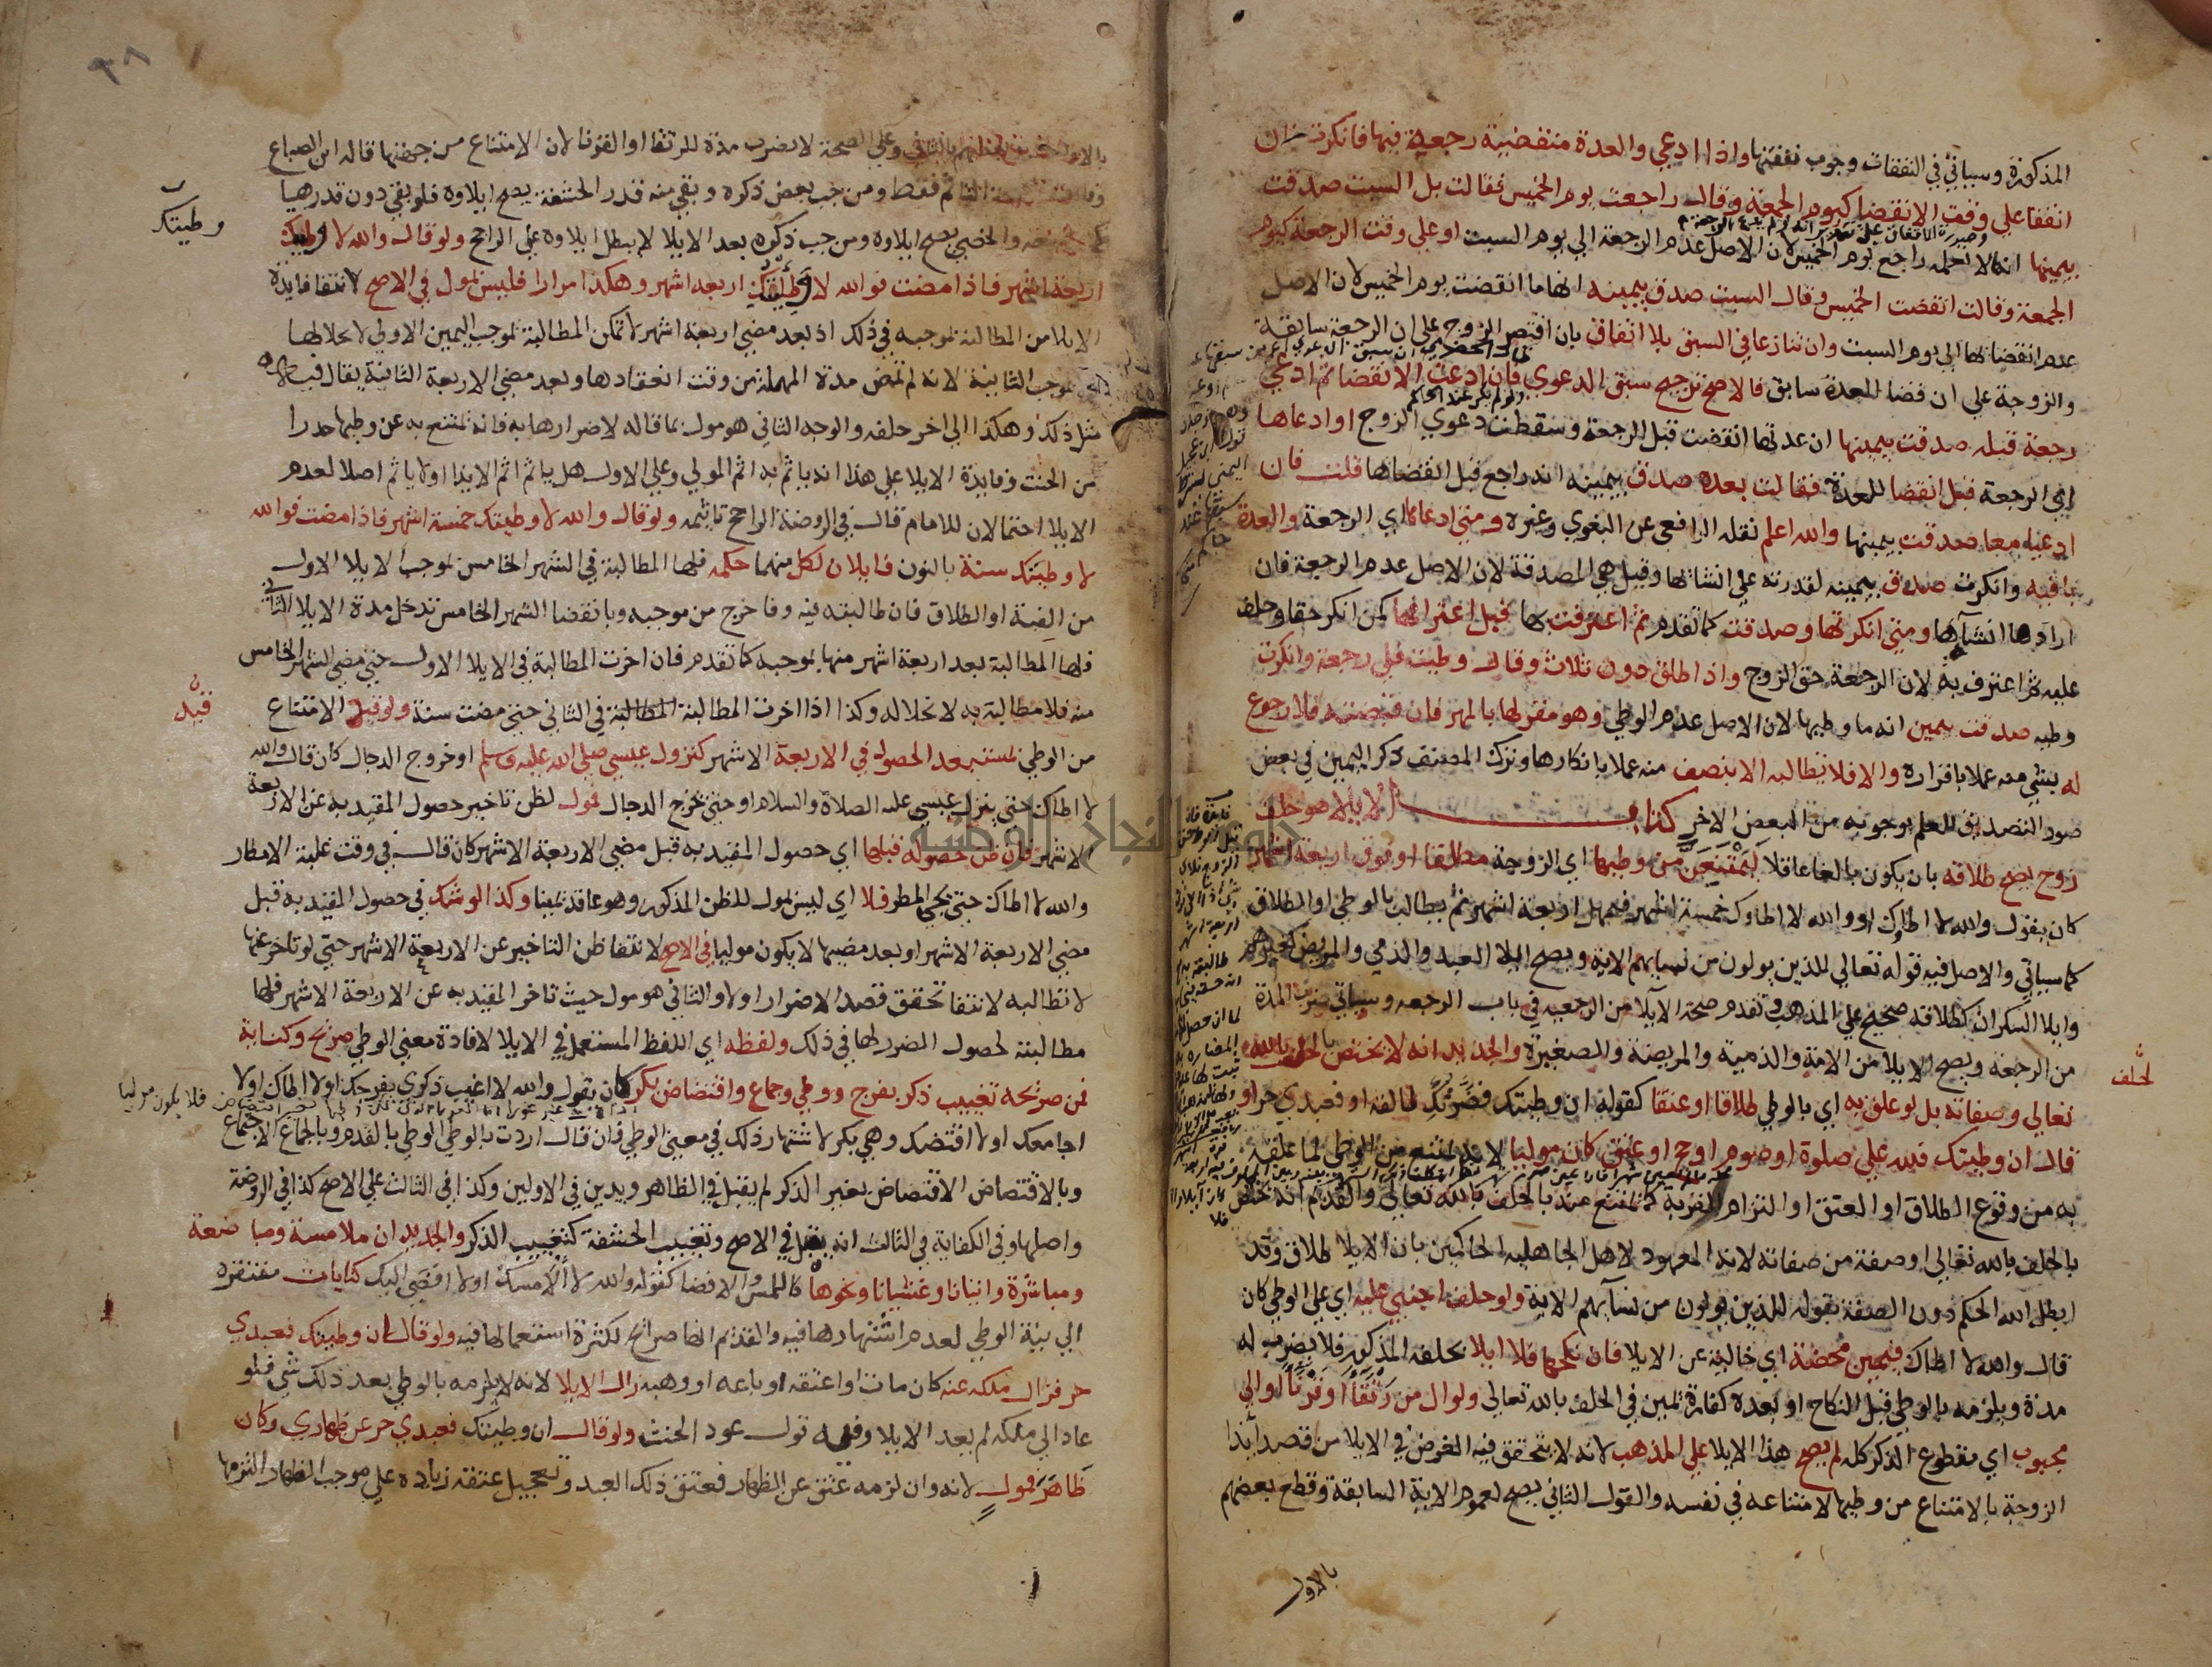 المذكورة وسياتي في النفقات وجوب نفقتها واذا ادعي والعدة منقضية رجعة فيها فانكرت فان
اتفقا علي وقت الانقضا كيوم الجمعة وقال راجعت يوم الخميس فقالت بل السبت صدقت
بيمينها انها لا تعلمه راجع يوم الخميس لان الاصل عدم الرجعة الي يوم السبت او علي وقت الرجعة كيوم
الجمعة وقالت انقضت الخميس وقال السبت صدق بيمينه انها ما انقضت يوم الخميس لان الاصل
عدم انقضائها الي يوم السبت وان تنازعا في السبق بلا اتفاق بان اقتصر الزوج علي ان الرجعة سابقة
والزوجة علي ان قضا العدة سابق فالاصح ترجيح سبق الدعوي فان ادعت الانقضا ثم ادعي
رجعة قبله صدقت بيمينها ان عدتها انقضت قبل الرجعة وسقطت دعوي الزوج او ادعاها
اي الرجعة قبل انقضا للعدة فقالت بعده صدق بيمينه انه راجع قبل انقضائها قلت فان
ادعيا معا صدقت بيمينها والله اعلم نقله الرافعي عن البغوي وغيره ومتي ادعاها اي الرجعة والعدة
باقية وانكرت صدق بيمينه لقدرته علي انشائها وقيل هي المصدقة لان الاصل عدم الرجعة فان
ارادها انشاها ومتي انكرتها وصدقت كما تقدم ثم اعترفت بها قبل اعترافها كمن انكر حقا وحلف
عليه ثم اعترف به لان الرجعة حق الزوج واذا طلق دون ثلاث وقال وطيت فلي رجعة وانكرت
وطيه صدقت بيمين انه ما وطيها لان الاصل عدم الوطي وهو مقر لها بالمهر فان قبضته فلا رجوع
له بشي منه عملا باقراره والا فلا تطالبه الا بنصف منه عملا بانكارها وترك المصنف ذكر اليمين في بعض
صور التصديق للعلم بوجوبه من البعض الاخر كتاب الايلا هو حلف
زوج يصح طلاقه بان يكون بالغا عاقلا ليمتنعن من وطيها اي الزوجة مطلقا او فوق اربعة اشهر
كان يقول والله لا اطاوك او والله لا اطاوك خمسة اشهر فيمهل اربعة اشهر ثم يطالب بالوطي او الطلاق
كما سياتي والاصل فيه قوله تعالي للذين يولون من نسايهم الاية ويصح ايلا العبد والذمي والمريض كغيرهم
وايلا السكران كطلاقه صحيح علي المذهب وتقدم صحة الايلا من الرجعيه في باب الرجعه وسياتي ضرب المدة
من الرجعه ويصح الايلا من الامة والذمية والمريضة والصغيرة والجديد انه لا يختص الحلف بالله
تعالي وصفاته بل لو علق به اي بالوطي طلاقا او عتقا كقوله ان وطيتك فضرتك طالقه او فعبدي حر او
قال ان وطيتك فلله علي صلوة او صوم او حج او عتق كان موليا لانه يمتنع من الوطي لما علقه
به من وقوع الطلاق او العتق او التزام القربة كما يمتنع منه بالحلف بالله تعالي والقديم انه يختص
بالحلف بالله تعالي او صفة من صفاته لانه المعهود لاهل الجاهلية الحاكمين بان الايلا طلاق وقد
ابطل الله الحكم دون الصفة بقوله للذين يولون من نسايهم الاية ولو حلف اجنبي عليه اي علي الوطي كان
قال والله لا اطاك فيمين محضة اي خالية عن الايلا فان نكحها فلا ايلا بحلفه المذكور فلا يضرب له
مدة ويلزمه بالوطي قبل النكاح او بعده كفارة يمين في الحلف بالله تعالي ولو الي من رتقا او قرنا او الي
مجبوب اي مقطوع الذكر كله لم يصح هذا الايلا علي المذهب لانه لا يتحقق فيه الغرض في الايلا من قصد ايذا
الزوجة بالامتناع من وطيها لامتناعه في نفسه والقول الثاني يصح لعموم الاية السابقة وقطع بعضهم
بالاول
لحلف
٣٨
بالاول وبعضهم بالثاني وعلي الصحة لا يضرب مدة للرتقا او القرنا لان الامتناع من جهتها قاله ابن الصباغ
فقط ومن جب بعض ذكره وبقي منه قدر الحشفة يصح ايلاوه فلو بقي دون قدرها
والخصي يصح ايلاوه ومن جب ذكره بعد الايلا لا يبطل ايلاوه علي الراجح ولو قال والله لا وطيتك
اربعة اشهر فاذا مضت فوالله لا وطيتك اربعة اشهر وهكذا مرارا فليس بمول في الاصح لانتفا فايدة
الايلا من المطالبة بموجبه في ذلك اذ بعد مضي اربعة اشهر لا تمكن المطالبة بموجب اليمين الاولي لانحلالها
ولا بموجب الثانية لانه لم تمض مدة المهملة من وقت انعقادها وبعد مضي الاربعة الثانية يقال فيه
مثل ذلك وهكذا الي اخر حلفه والوجه الثاني هو مول بما قاله لاضرارها به فانه تمتنع به عن وطيها حدرا
من الحنث وفايدة الايلا علي هذا انه ياثم به اثم المولي وعلي الاول هل ياثم اثم الايذا او لا ياثم اصلا لعدم
الايلا احتمالان للامام قال في الروضة الراجح تاثيمه ولو قال والله لا وطيتك خمسة اشهر فاذا مضت فوالله
لا وطيتك سنة بالنون فايلان لكل منهما حكمه فلها المطالبة في الشهر الخامس بموجب الايلا الاول
من الفية او الطلاق فان طالبته فيه وفا خرج من موجبه وبانقضا الشهر الخامس تدخل مدة الايلا الثاني
فلها المطالبة بعد اربعة اشهر منها بموجبه كما تقدم فان اخرت المطالبة في الايلا الاول حتي مضي الشهر الخامس
منه فلا مطالبة به لانحلاله وكذا اذا اخرت المطالبة المطالبة في الثاني حتي مضت سنة ولو قيد الامتناع
من الوطي بمستبعد الحصول في الاربعة الاشهر كنزول عيسي صلي الله عليه وسلم او خروج الدجال كان قال والله
لا اطاك حتي ينزل عيسي عليه الصلاة والسلام او حتي يخرج الدجال فمول لظن تاخير حصول المقيد به عن الاربعة
الاشهر فان ظن حصوله قبلها اي حصول المقيد به قبل مضي الاربعة الاشهر كان قال في وقت غلبة الامطار
والله لا اطاك حتي يجي المطر فلا اي ليس بمول للظن المذكور وهو عاقد يمينا وكذا لو شك في حصول المقيد به قبل
مضي الاربعة الاشهر او بعد مضيها لا يكون موليا في الاصح لانتفا ظن التاخير عن الاربعة الاشهر حتي لو تاخر عنها
لا تطالبه لانتفا تحقق قصد الاضرار اولا والثاني هو مول حيث تاخر المقيد به عن الاربعة الاشهر فلها
مطالبته لحصول الضرر لها في ذلك ولفظه اي اللفظ المستعمل في الايلا لافادة معني الوطي صريح وكناية
فمن صريحه تغييب ذكر بفرج ووطي وجماع وافتضاض بكر كان يقول والله لا اغيب ذكري بفرجك او لا اطاك او لا
اجامعك او لا افتضك وهي بكر لاشتهار ذلك في معني الوطي فان قال اردت بالوطي الوطي بالقدم وبالجماع الاجتماع
وبالافتضاض الافتضاض بغير الذكر لم يقبل في الظاهر ويدين في الاولين وكذا في الثالث علي الاصح كذا في الروضة
واصلها وفي الكفاية في الثالث انه يقبل في الاصح وتغييب الحشفة كتغييب الذكر والجديد ان ملامسة ومباضعة
ومباشرة واتيانا وغشيانا ونحوها كاللمس والافضا كقوله والله لا الامسك او لا افضي اليك كنايات مفتقره
الي نية الوطي لعدم اشتهارها فيه والقديم انها صرايح لكثرة استعمالها فيه ولو قال ان وطيتك فعبدي
حر فزال ملكه عنه كان مات او اعتقه او باعه او وهبه زال الايلا لانه لا يلزمه بالوطي بعد ذلك شي فلو
عاد الي ملكه لم يعد الايلا وفيه قول عود الحنث ولو قال ان وطيتك فعبدي حر عن ظهاري وكان
ظاهر فمول لانه وان لزمه عتق عن الظهار فعتق ذلك العبد وتعجيل عتقه زيادة علي موجب الظهار التزمها
وطيتك
قيد
فلا يكون موليا